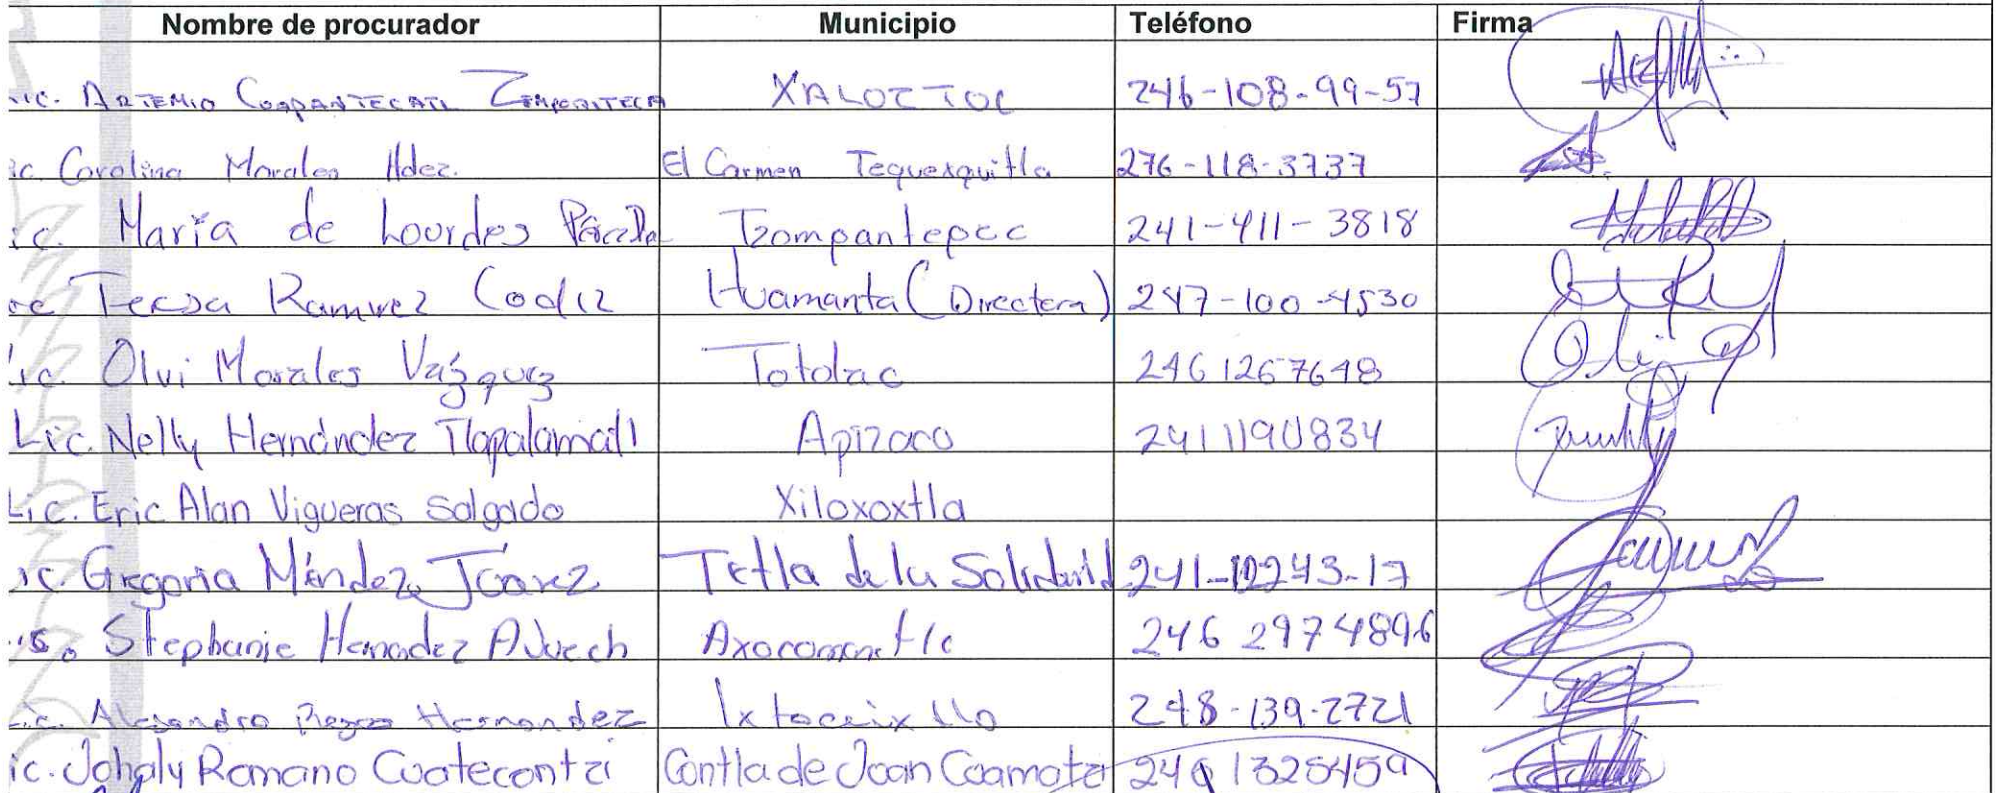 Nombre de procurador Municipio Teléfono Firma
Lic. ARTEMIO COAPANTECATL XALOZTOC 246-108-99-57
ic. Carolina Morales Hdez. El Carmen Tequexquitla 276-118-3737
ic. María de Lourdes Tzompantepec 241-411-3818
Ramirez Huamanta (Directora) 247-100-4530
ic. Olvi Morales Vázquez Totolac 246 1267648
Lic. Nelly Hernández Tlapalamatl Apizaco 2411190834
Lic. Eric Alan Vigueras Salgado Xiloxoxtla
ic. Gregoria Méndez Júarez Tetla de la Solidarid 241-
Stephanie Hernandez Axocomanitla 246 2974896
Lic. Alejandro Hernandez 248-139-2721
ic. Johaly Romano Cuatecontzi Contla de Juan Cuamatzi 246 1325459